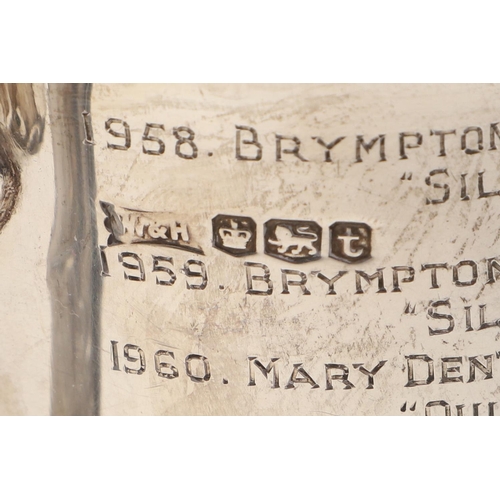 1958. BRYMPTON
"SIL
W&H t
1959. BRYMPTON
"SIL
1960. MARY DENT
"QUI